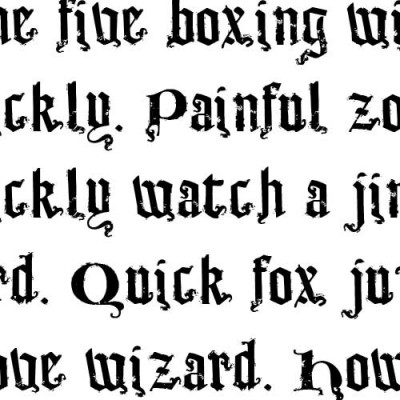 he five boxing wi
ickly. Painful zo
ickly watch a jin
rd. Quick fox ju
ove wizard. How